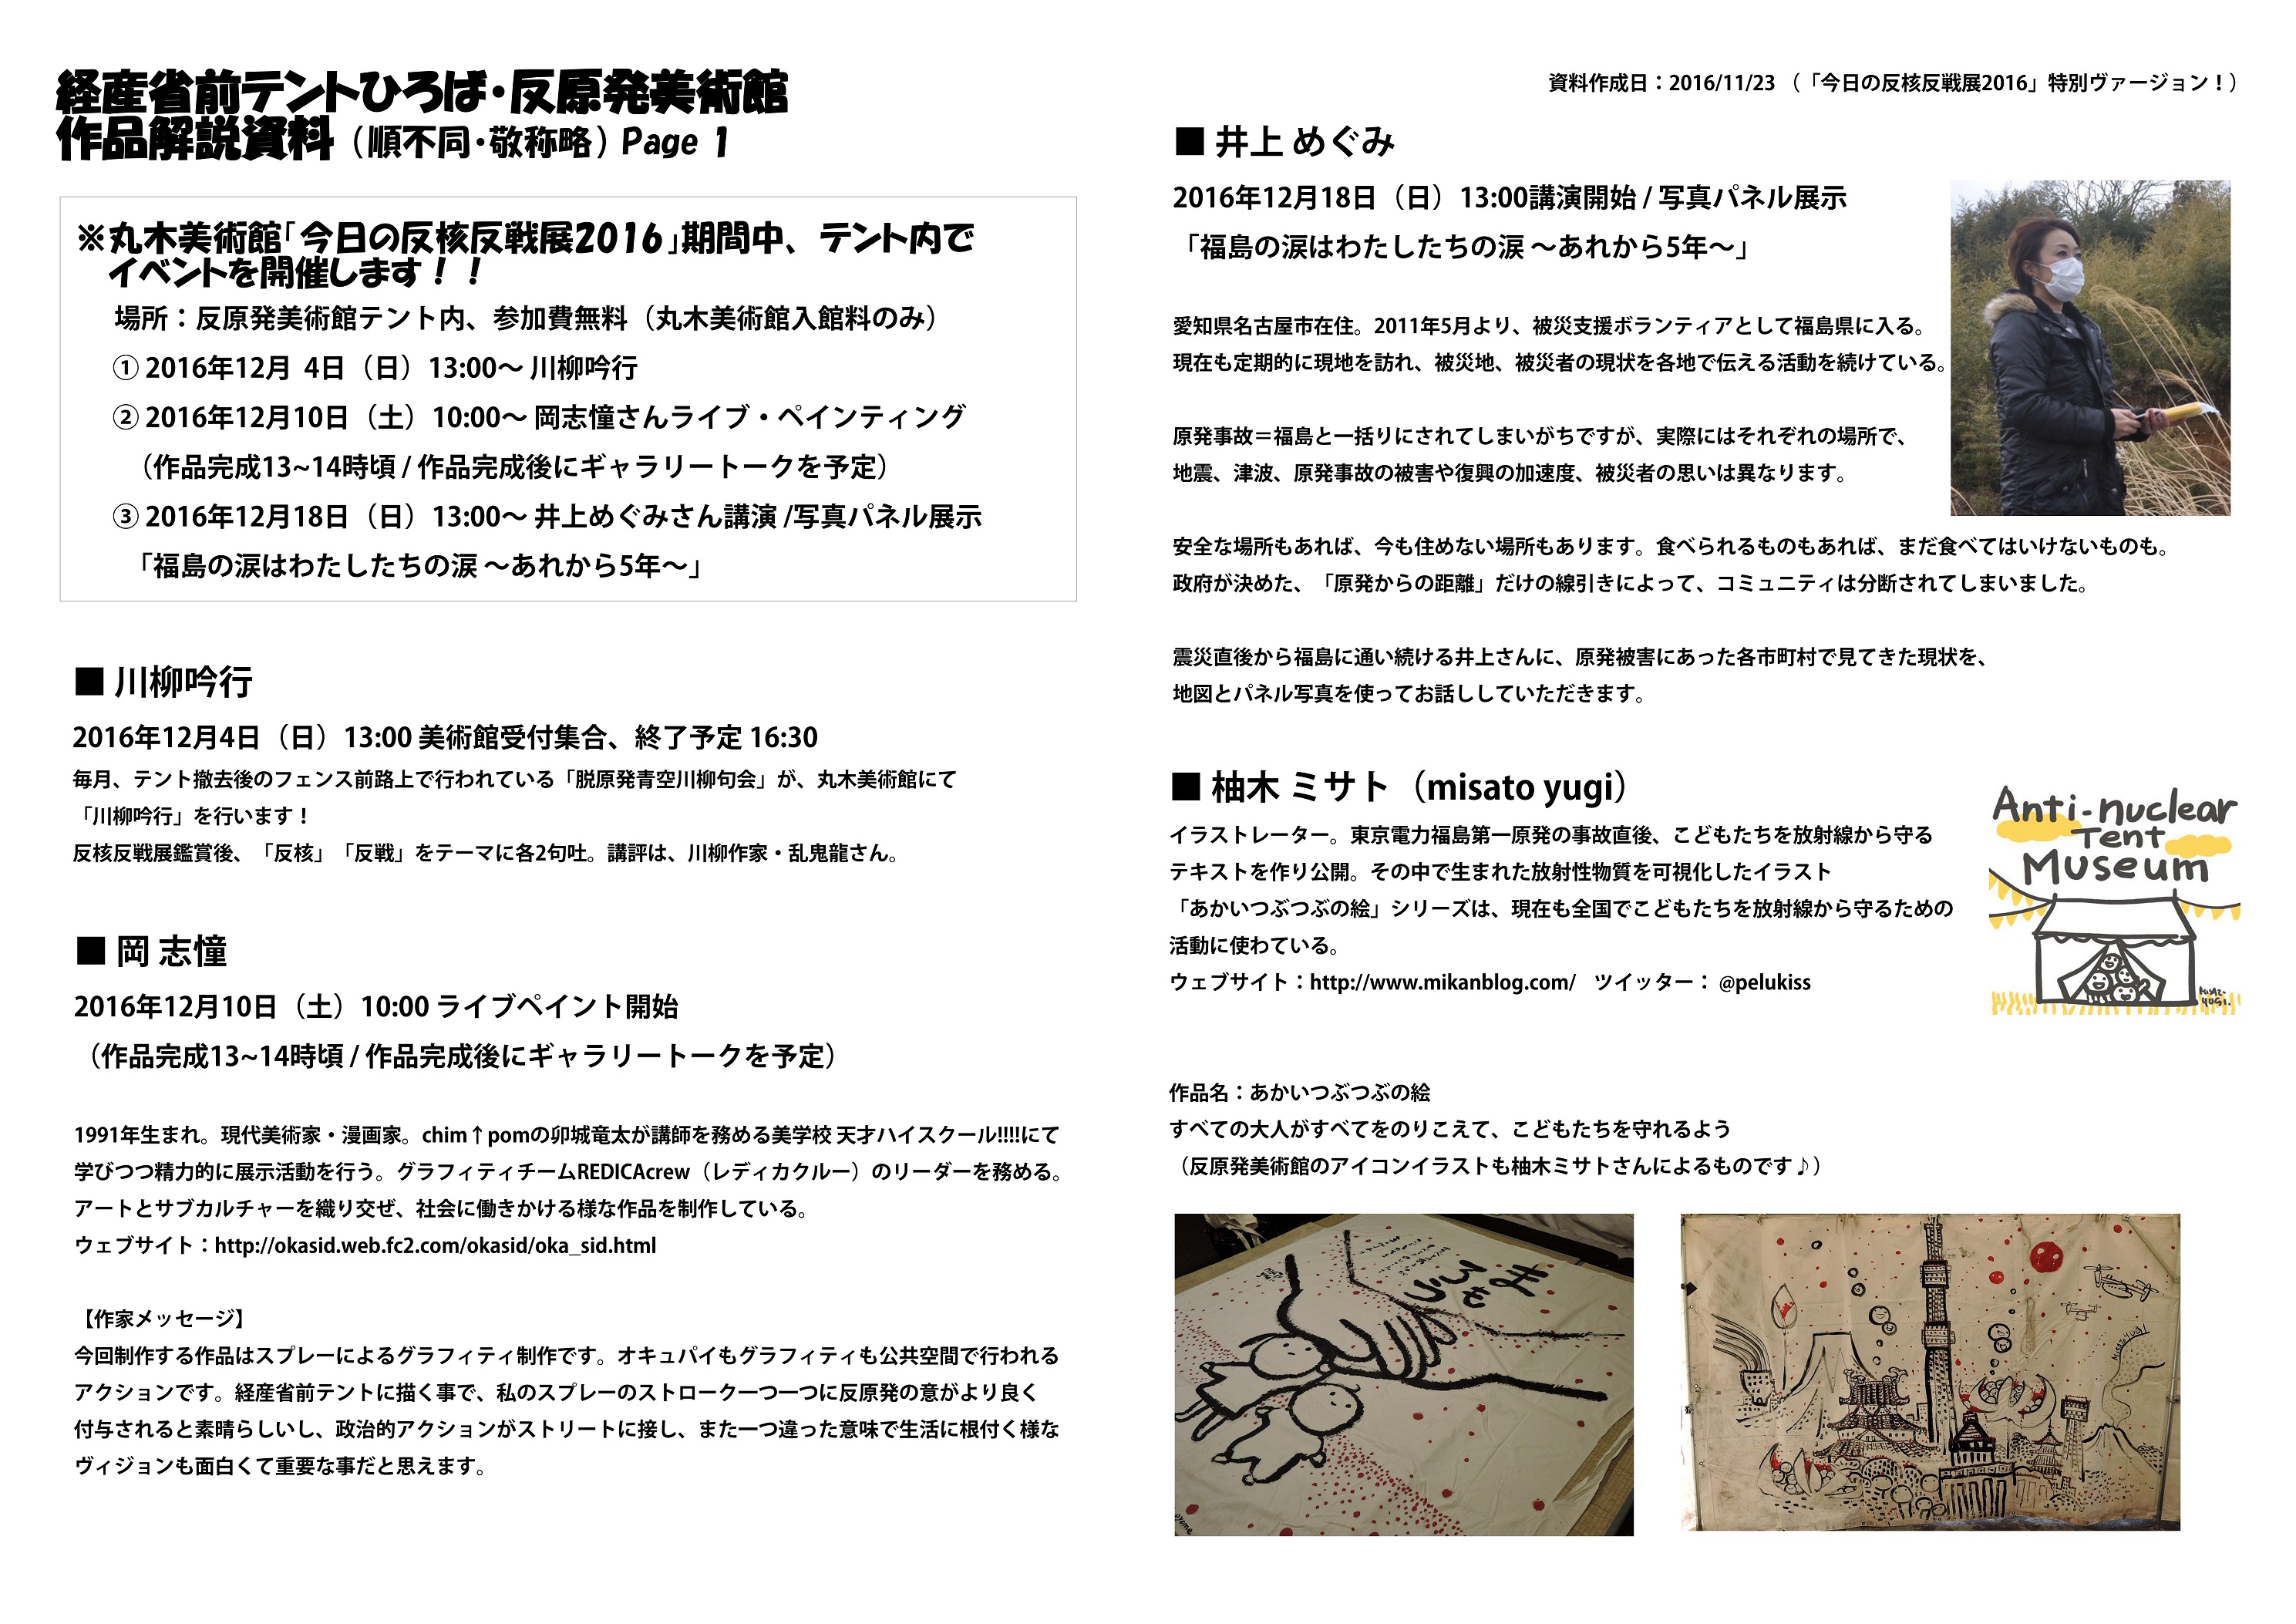 経産省前テントひろば・反原発美術館
作品解説資料（順不同・敬称略）Page 1
※丸木美術館「今日の反核反戦展2016」期間中、テント内で
イベントを開催します！！
場所：反原発美術館テント内、参加費無料（丸木美術館入館料のみ）
① 2016年12月 4日（日）13:00〜 川柳吟行
② 2016年12月10日（土）10:00〜 岡志憧さんライブ・ペインティング
（作品完成13~14時頃 / 作品完成後にギャラリートークを予定）
③ 2016年12月18日（日）13:00〜 井上めぐみさん講演 /写真パネル展示
「福島の涙はわたしたちの涙 〜あれから5年〜」
■ 川柳吟行
2016年12月4日（日）13:00 美術館受付集合、終了予定 16:30
毎月、テント撤去後のフェンス前路上で行われている「脱原発青空川柳句会」が、丸木美術館にて
「川柳吟行」を行います！
反核反戦展鑑賞後、「反核」「反戦」をテーマに各2句吐。講評は、川柳作家・乱鬼龍さん。
■ 岡 志憧
2016年12月10日（土）10:00 ライブペイント開始
（作品完成13~14時頃 / 作品完成後にギャラリートークを予定）
1991年生まれ。現代美術家・漫画家。chim↑pomの卯城竜太が講師を務める美学校 天才ハイスクール!!!!にて
学びつつ精力的に展示活動を行う。グラフィティチームREDICAcrew（レディカクルー）のリーダーを務める。
アートとサブカルチャーを織り交ぜ、社会に働きかける様な作品を制作している。
ウェブサイト：http://okasid.web.fc2.com/okasid/oka_sid.html
【作家メッセージ】
今回制作する作品はスプレーによるグラフィティ制作です。オキュパイもグラフィティも公共空間で行われる
アクションです。経産省前テントに描く事で、私のスプレーのストローク一つ一つに反原発の意がより良く
付与されると素晴らしいし、政治的アクションがストリートに接し、また一つ違った意味で生活に根付く様な
ヴィジョンも面白くて重要な事だと思えます。
資料作成日：2016/11/23 （「今日の反核反戦展2016」特別ヴァージョン！）
■ 井上 めぐみ
2016年12月18日（日）13:00講演開始 / 写真パネル展示
「福島の涙はわたしたちの涙 〜あれから5年〜」
愛知県名古屋市在住。2011年5月より、被災支援ボランティアとして福島県に入る。
現在も定期的に現地を訪れ、被災地、被災者の現状を各地で伝える活動を続けている。
原発事故＝福島と一括りにされてしまいがちですが、実際にはそれぞれの場所で、
地震、津波、原発事故の被害や復興の加速度、被災者の思いは異なります。
安全な場所もあれば、今も住めない場所もあります。食べられるものもあれば、まだ食べてはいけないものも。
政府が決めた、「原発からの距離」だけの線引きによって、コミュニティは分断されてしまいました。
震災直後から福島に通い続ける井上さんに、原発被害にあった各市町村で見てきた現状を、
地図とパネル写真を使ってお話ししていただきます。
■ 柚木 ミサト（misato yugi）
イラストレーター。東京電力福島第一原発の事故直後、こどもたちを放射線から守る
テキストを作り公開。その中で生まれた放射性物質を可視化したイラスト
「あかいつぶつぶの絵」シリーズは、現在も全国でこどもたちを放射線から守るための
活動に使わている。
ウェブサイト：http://www.mikanblog.com/ ツイッター： @pelukiss
Anti-nuclear
Tent
Museum
作品名：あかいつぶつぶの絵
すべての大人がすべてをのりこえて、こどもたちを守れるよう
（反原発美術館のアイコンイラストも柚木ミサトさんによるものです♪）